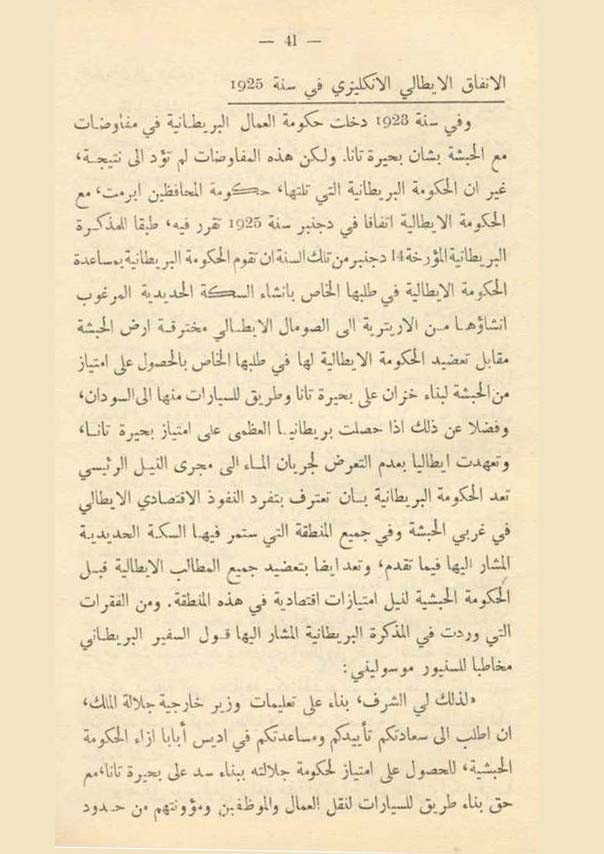 — 41 —
الاتفاق الايطالي الانكليزي في سنة 1925
وفي سنة 1923 دخلت حكومة العمال البريطانية في مفاوضات
مع الحبشة بشان بحيرة تانا. ولكن هذه المفاوضات لم تؤد الى نتيجة،
غير ان الحكومة البريطانية التي تلتها، حكومة المحافظين ابرمت، مع
الحكومة الايطالية اتفاقا في دجنبر سنة 1925 تقرر فيه، طبقا للمذكرة
البريطانية المؤرخة 14 دجنبر من تلك السنة ان تقوم الحكومة البريطانية بمساعدة
الحكومة الايطالية في طلبها الخاص بانشاء السكة الحديدية المرغوب
انشاؤها من الاريترية الى الصومال الايطالي مخترقة ارض الحبشة
مقابل تعضيد الحكومة الايطالية لها في طلبها الخاص بالحصول على امتياز
من الحبشة لبناء خزان على بحيرة تانا وطريق للسيارات منها الى السودان،
وفضلا عن ذلك اذا حصلت بريطانيا العظمى على امتياز بحيرة تانا،
وتعهدت ايطاليا بعدم التعرض لجريان الماء الى مجرى النيل الرئيسي
تعد الحكومة البريطانية بان تعترف بتفرد النفوذ الاقتصادي الايطالي
في غربي الحبشة وفي جميع المنطقة التي ستمر فيها السكة الحديدية
المشار اليها فيما تقدم، وتعد ايضا بتعضيد جميع المطالب الايطالية قبل
الحكومة الحبشية لنيل امتيازات اقتصادية في هذه المنطقة. ومن الفقرات
التي وردت في المذكرة البريطانية المشار اليها قول السفير البريطاني
مخاطبا للسنيور موسوليني :
«لذلك لي الشرف، بناء على تعليمات وزير خارجية جلالة الملك،
ان اطلب الى سعادتكم تأييدكم ومساعدتكم في اديس أبابا ازاء الحكومة
الحبشية، للحصول على امتياز لحكومة جلالته ببناء سد على بحيرة تانا، مع
حق بناء طريق للسيارات لنقل العمال والموظفين ومؤونتهم من حدود